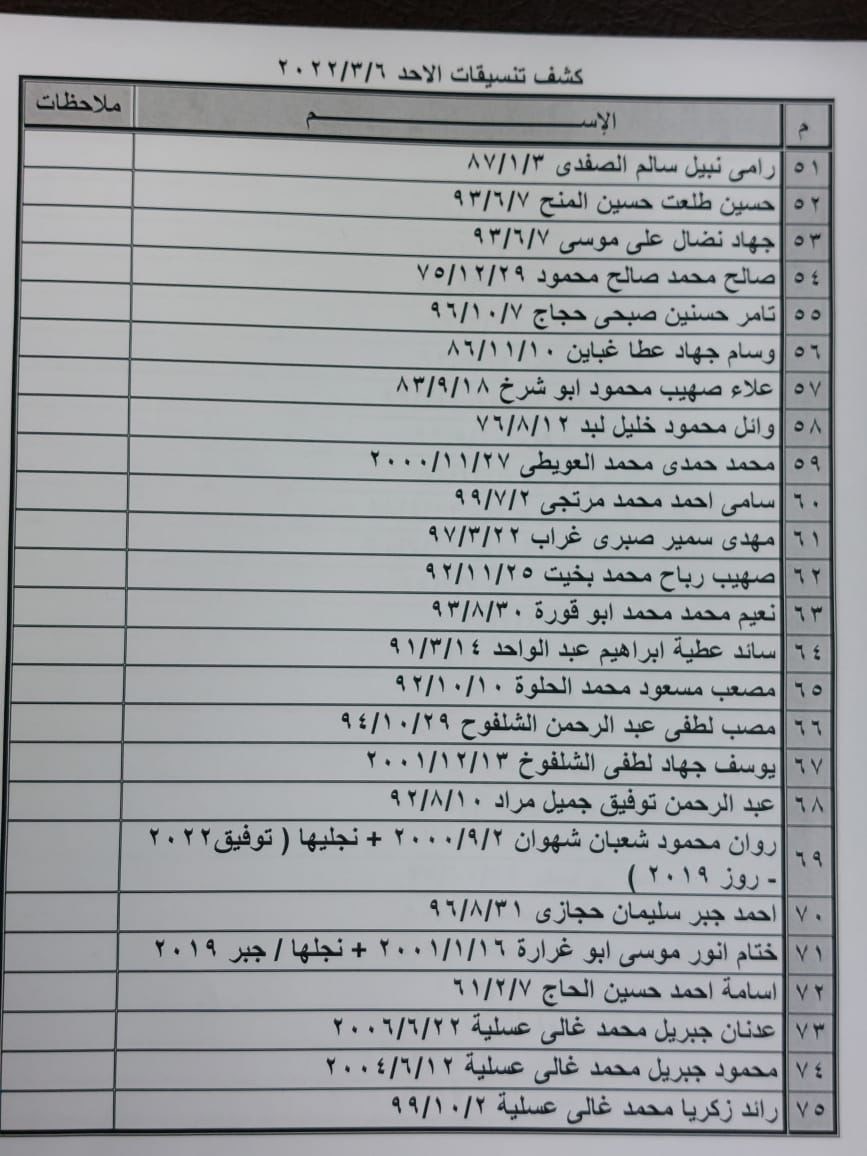 كشف تنسيقات الاحد ٢٠٢٢/٣/٦
م الإســــــم ملاحظات
٥١ رامى نبيل سالم الصفدى ٨٧/١/٣
٥٢ حسين طلعت حسين المنح ٩٣/٦/٧
٥٣ جهاد نضال على موسى ٩٣/٦/٧
٥٤ صالح محمد صالح محمود ٧٥/١٢/٢٩
٥٥ تامر حسنين صبحى حجاج ٩٦/١٠/٧
٥٦ وسام جهاد عطا غباين ٨٦/١١/١٠
٥٧ علاء صهيب محمود ابو شرخ ٨٣/٩/١٨
٥٨ وائل محمود خليل لبد ٧٦/٨/١٢
٥٩ محمد حمدى محمد العويطى ٢٠٠٠/١١/٢٧
٦٠ سامى احمد محمد مرتجى ٩٩/٧/٢
٦١ مهدى سمير صبرى غراب ٩٧/٣/٢٢
٦٢ صهيب رباح محمد بخيت ٩٢/١١/٢٥
٦٣ نعيم محمد محمد ابو قورة ٩٣/٨/٣٠
٦٤ سائد عطية ابراهيم عبد الواحد ٩١/٣/١٤
٦٥ مصعب مسعود محمد الحلوة ٩٢/١٠/١٠
٦٦ مصب لطفى عبد الرحمن الشلفوح ٩٤/١٠/٢٩
٦٧ يوسف جهاد لطفى الشلفوخ ٢٠٠١/١٢/١٣
٦٨ عبد الرحمن توفيق جميل مراد ٩٢/٨/١٠
٦٩ روان محمود شعبان شهوان ٢٠٠٠/٩/٢ + نجليها ( توفيق٢٠٢٢
- روز ٢٠١٩ )
٧٠ احمد جبر سليمان حجازى ٩٦/٨/٣١
٧١ ختام انور موسى ابو غرارة ٢٠٠١/١/١٦ + نجلها / جبر ٢٠١٩
٧٢ اسامة احمد حسين الحاج ٦١/٢/٧
٧٣ عدنان جبريل محمد غالى عسلية ٢٠٠٦/٦/٢٢
٧٤ محمود جبريل محمد غالى عسلية ٢٠٠٤/٦/١٢
٧٥ رائد زكريا محمد غالى عسلية ٩٩/١٠/٢